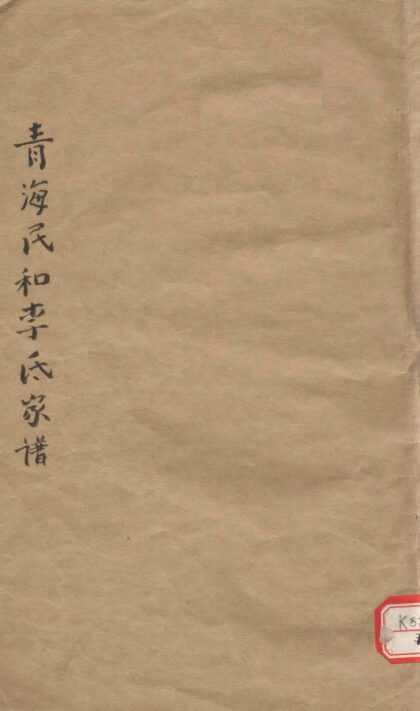 青海民和李氏家谱
K8